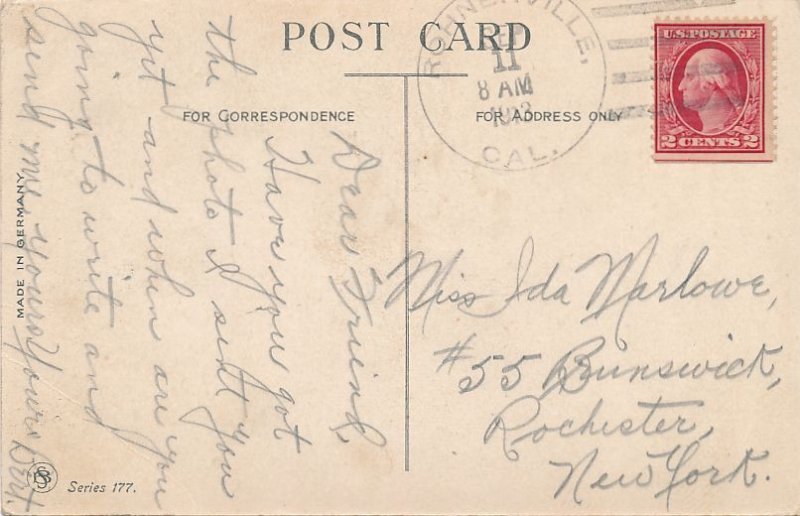 POST CARD
FOR CORRESPONDENCE
FOR ADDRESS ONLY
ROHNERVILLE,
11
8 AM
CAL.
U.S. POSTAGE
2 CENTS 2
Dear Friend,
Have you got
the photo I sent you
yet and when are you
going to write and
send me yours Yours Bert.
Miss Ida Marlowe,
#55 Brunswick,
Rochester,
New York.
MADE IN GERMANY
Series 177.